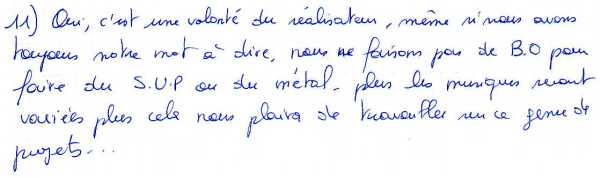 11) Oui, c'est une volonté du réalisateur, même si nous avons
toujours notre mot à dire, nous ne faisons pas de B.O pour
faire du S.U.P ou du métal. plus les musiques seront
variées plus cela nous plaira de travailler sur ce genre de
projets...